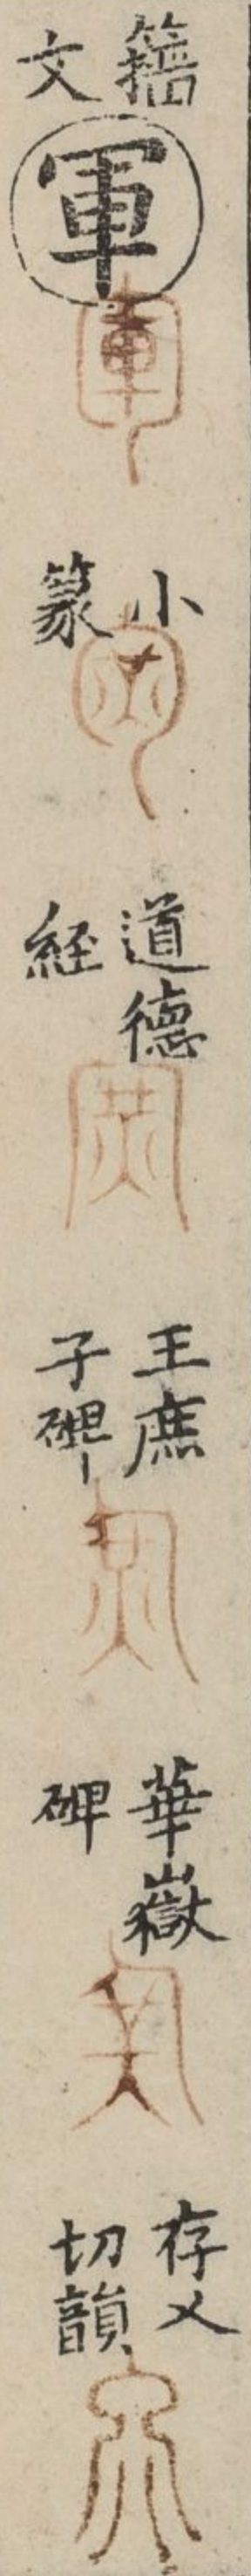 籀文
軍
小篆
道德経
王庶子碑
華嶽碑
存乂切韻